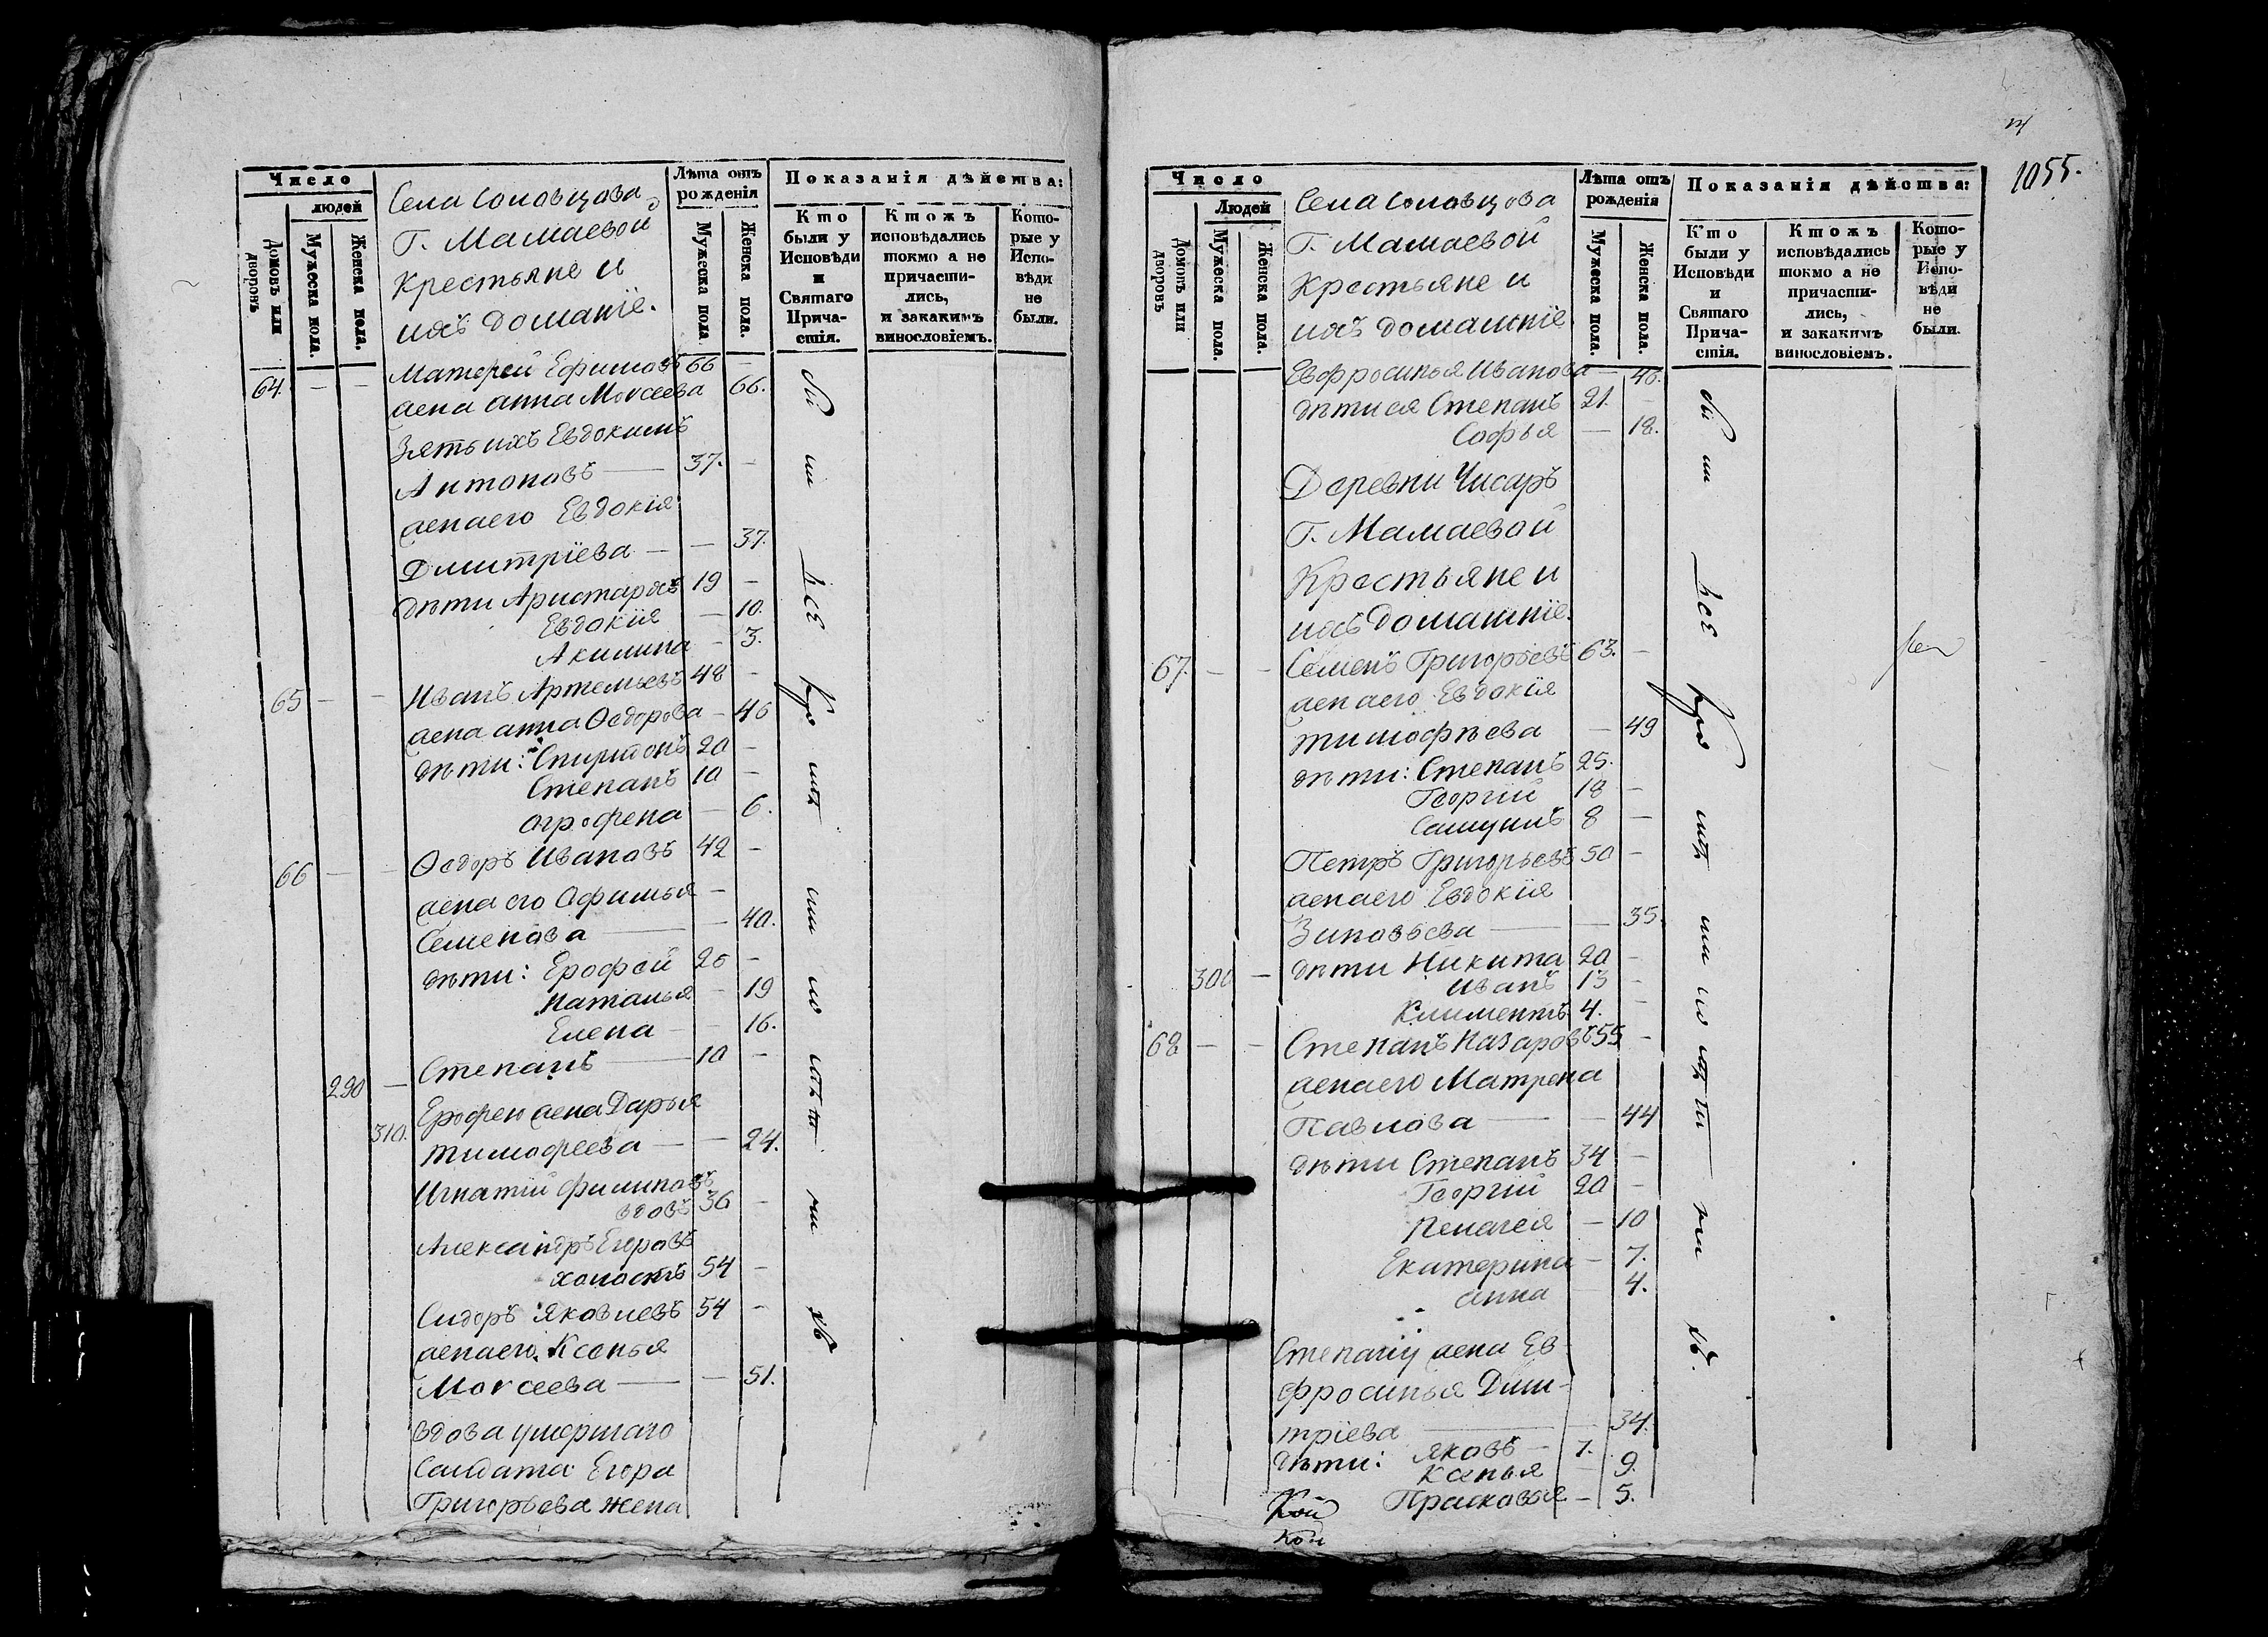 Число
людей
Домовъ или дворовъ
Мужеска пола.
Женска пола.
Села Соловцова
Г. Мамаевой
Крестьяне и
ихъ доманіе.
Лѣта отъ рожденія
Мужеска пола
Женска пола.
Показанія дѣйства:
Кто были у Исповѣди и Святаго Прича-стія.
Ктожъ исповѣдались токмо а не причасти-лись, и закакимъ винословіемъ.
Кото-рые у Испо-вѣди не были.
64. — — Матфей Ефимовъ 66 —
жена анна Мовсеева 66.
Зять ихъ Евдокимъ
Антоновъ — 37. —
жена его Евдокія
Дмитріева — — 37.
дѣти Аристархъ 19 —
Евдокія — 10.
Акилина — 3.
65 — — Иванъ Артемьевъ 48 —
жена анна Ѳедорова — 46
дѣти: Спиридонъ 20 —
Степанъ 10 —
агрофена — 6.
66 — — Ѳедоръ Ивановъ 42 —
жена его Афимья —
Семенова — — 40.
дѣти: Ерофей 25 —
наталья — 19
Елена — — 16.
Степанъ — 10 —
290 —
Ерофею жена Дарья
310. тимофеева — — 24.
Игнатій филиповъ
вдовъ 36 —
Александръ Егоровъ
холостъ 54 —
Сидоръ Яковлевъ 54 —
жена его Ксенья
Мовсеева — — 51.
вдова умершаго
Салдата Егора
Григорьева жена
1055.
Число
Людей
Домовъ или дворовъ
Мужеска пола.
Женска пола.
Села Соловцова
Г. Мамаевой
Крестьяне и
ихъ домашніе
Лѣта отъ рожденія
Мужеска пола.
Женска пола.
Показанія дѣйства:
Кто были у Исповѣди и Святаго Прича-стія.
Ктожъ исповѣдались токмо а не причасти-лись, и закакимъ винословіемъ.
Кото-рые у Испо-вѣди не были.
Евфросинья Иванова — 46.
дѣти ея Степанъ 21. —
Софья — 18.
Деревни Чисаръ
Г. Мамаевой
Крестьяне и
ихъ домашніе.
67. — — Семенъ Григорьевъ 63. —
жена его Евдокія
тимофѣева — 49
дѣти: Степанъ 25.
Георгій 18 —
Самуилъ 8 —
Петръ Григорьевъ 50 —
жена его Евдокія
Зиновьева — — 35.
300 — дѣти Никита 20 —
иванъ 13 —
Климентъ 4. —
68 — — Степанъ Назаровъ 55 —
жена его Матрена
Павлова — — 44
дѣти Степанъ 34 —
Георгій 20 —
Пелагея — 10
Екатерина — 7.
анна — 4.
Степану жена Ев-
фросинья Дми-
тріева — — 34.
дѣти: яковъ — 7.
Ксенья — 9.
Прасковья — 5.